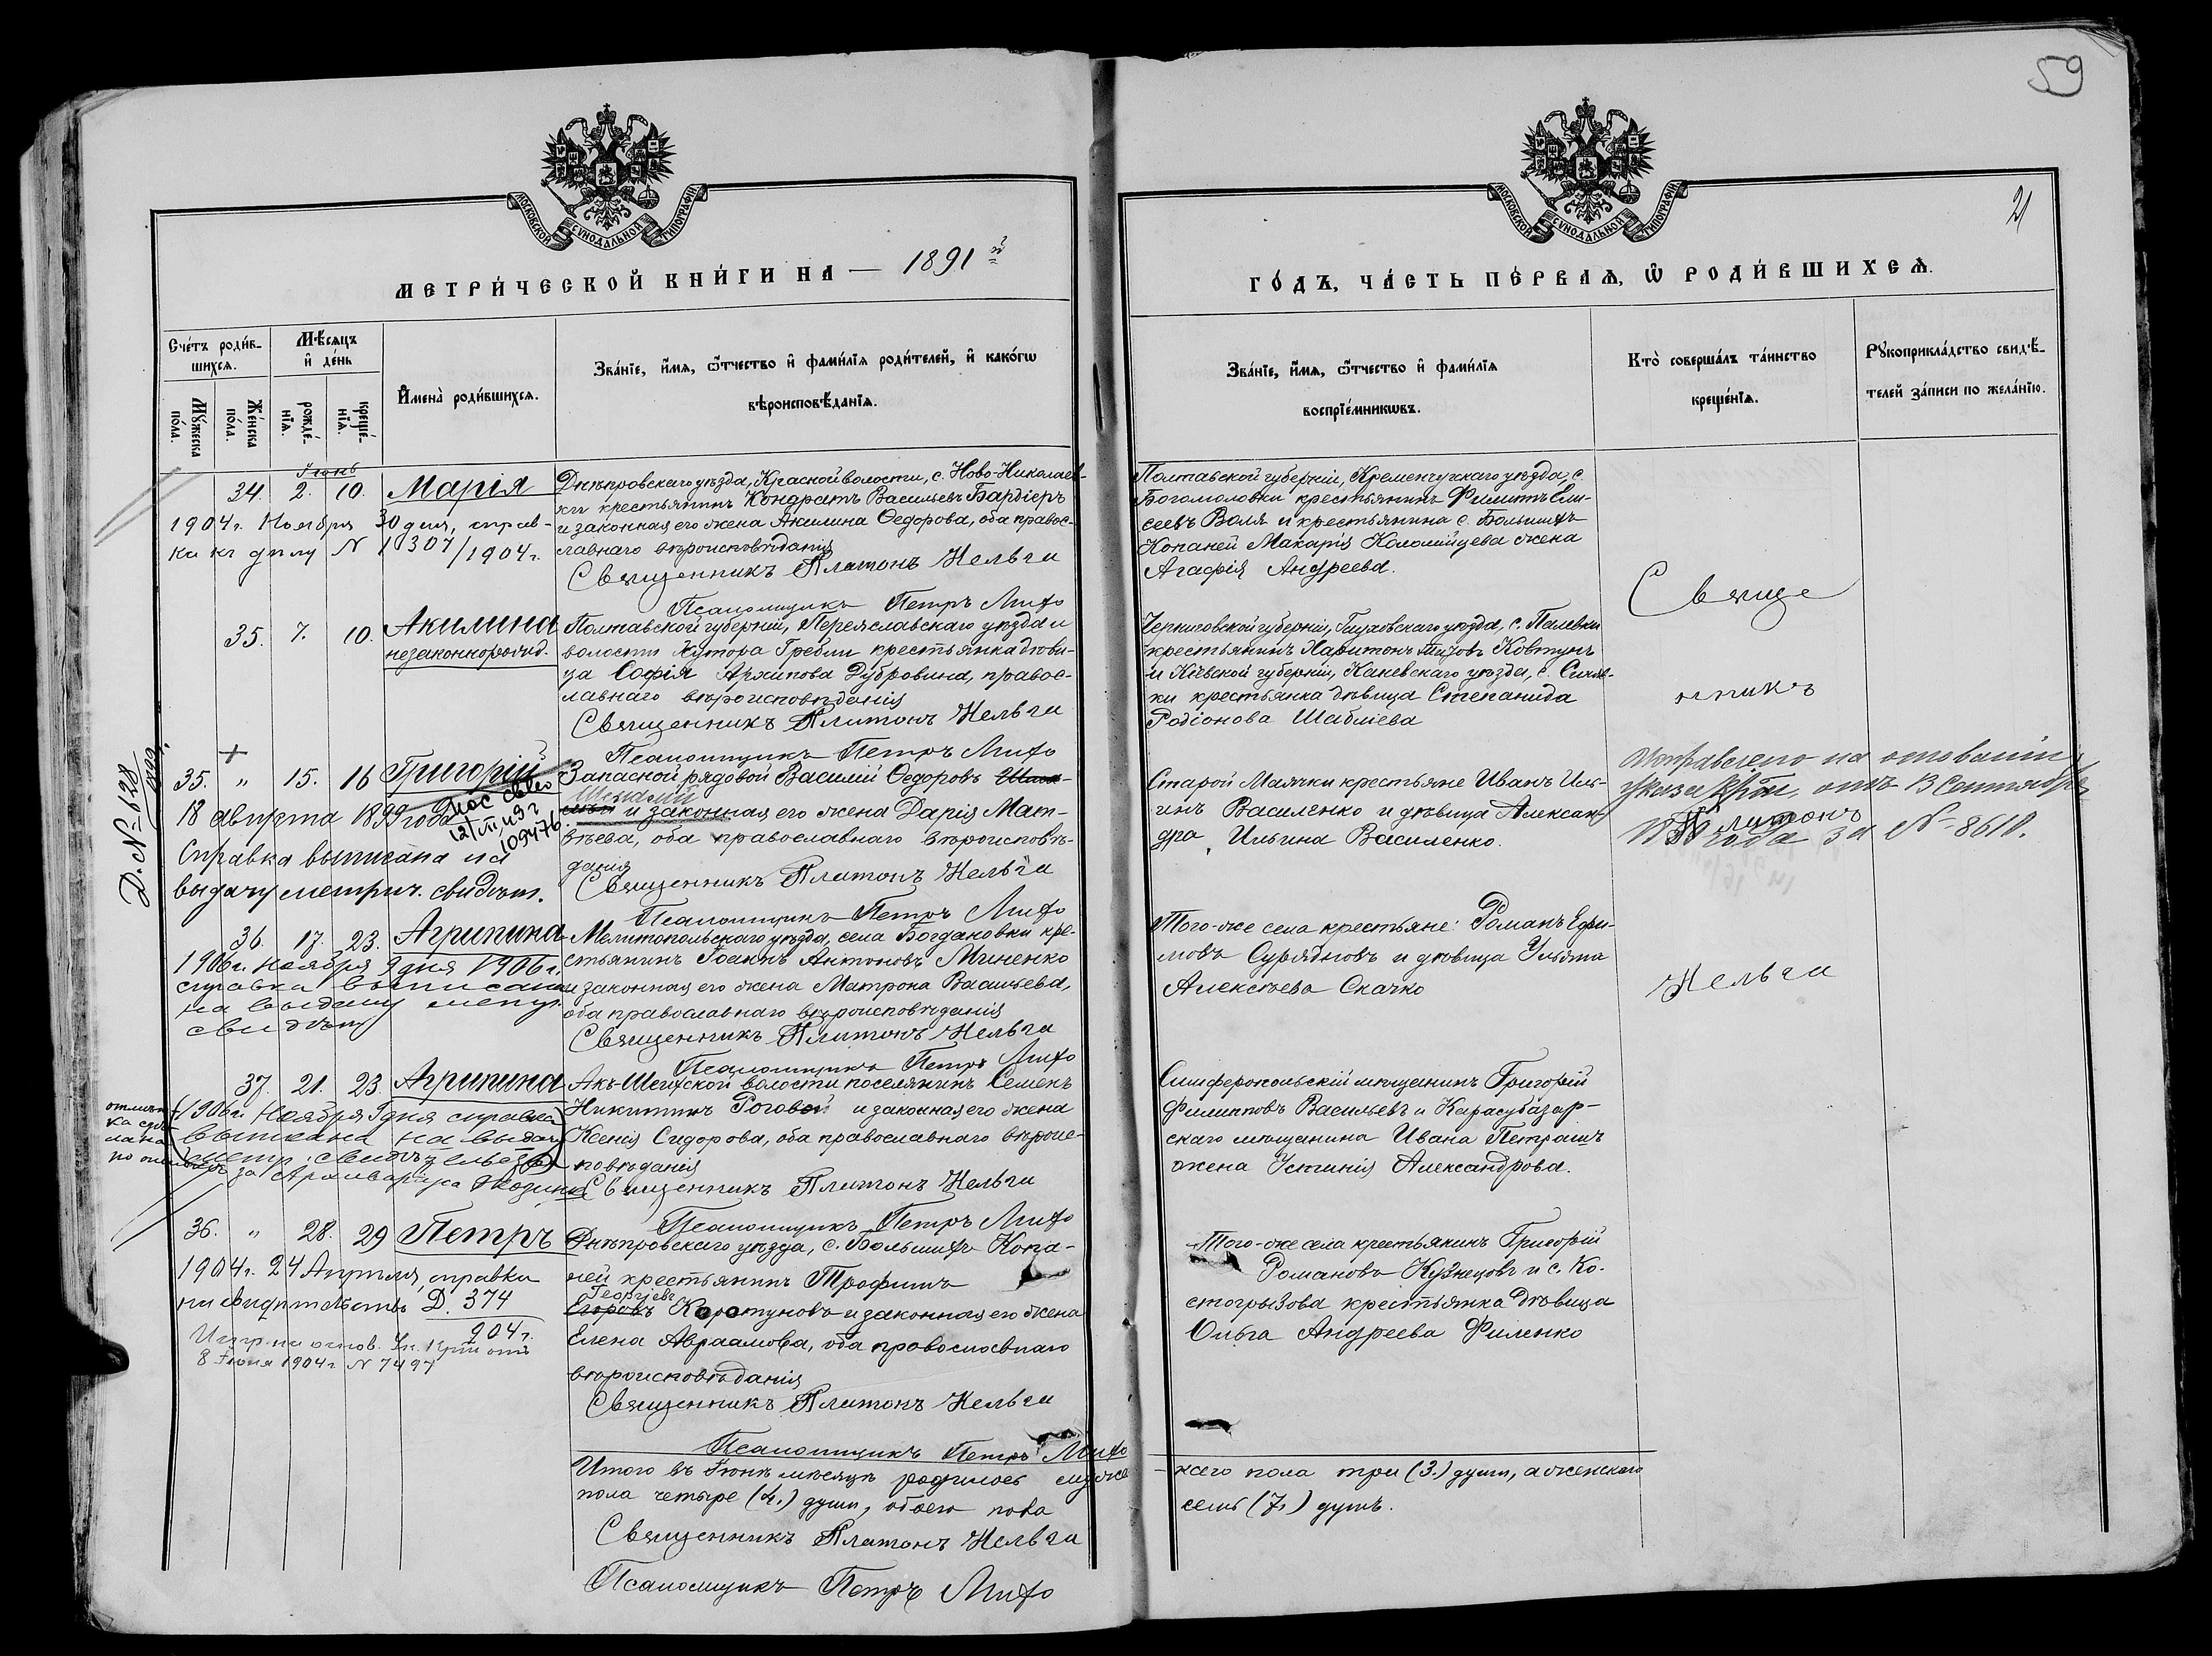 59
21
МОСКОВСКОЙ СѴНОДАЛЬНОЙ ТИПОГРАФІИ
МОСКОВСКОЙ СѴНОДАЛЬНОЙ ТИПОГРАФІИ
МЕТРИ́ЧЕСКОЙ КНИ́ГИ НА — 1891 й
ГО́ДЪ, ЧА́СТЬ ПЕ́РВАѦ, Ѡ҆ РОДИ́ВШИХСѦ.
Сче́тъ роди́в-
шихсѧ.
Мꙋ́жеска по́ла.
Же́нска по́ла.
Мѣ́сѧцъ и҆ де́нь
рожде́-нїѧ.
креще́-нїѧ.
И҆мена̀ роди́вшихсѧ.
Зва́нїе, и҆́мѧ, ѻ҆́тчество и҆ фами́лїѧ роди́телей, и҆ како́гѡ
вѣроисповѣ́данїѧ.
Зва́нїе, и҆́мѧ, ѻ҆́тчество и҆ фами́лїѧ
воспрїе́мникѡвъ.
Кто̀ соверша́лъ та́инство
креще́нїѧ.
Рꙋкоприкла́дство свидѣ́-
телей за́писи по жела́нїю.
Іюнь
34. 2. 10. Марія
1904 г. Ноября 30 дня, справ-
ка къ дѣлу N 10307/1904 г.
Днѣпровскаго уѣзда, Красной волости, с. Ново-Николаев-
ки крестьянинъ Кондратъ Васильевъ Бардіеръ
и законная его жена Акилина Ѳедорова, оба правос-
лавнаго вѣроисповѣданія
Священникъ Платонъ Нельга
Псаломщикъ Петръ Михо
Полтавской губерніи, Кременчугскаго уѣзда, с.
Богомоловки крестьянинъ Филиппъ Ели-
сеевъ Воля и крестьянина с. Большихъ
Копаней Макарія Коломійцева жена
Агафія Андреева.
35. 7. 10. Акилина
незаконнорожд.
Полтавской губерніи, Переяславскаго уѣзда и
волости хутора Гребли крестьянка дѣви-
ца Софія Архипова Дубровина, правос-
лавнаго вѣроисповѣданія
Священникъ Платонъ Нельга
Псаломщикъ Петръ Михо
Черниговской губерніи, Глуховскаго уѣзда, с. Палевки
крестьянинъ Харитонъ Ковтунъ
и Кіевской губерніи, Каневскаго уѣзда, с. Синяв-
ки крестьянка дѣвица Степанида
Родіонова Шабліева
Свяще
нникъ
Платонъ
Нельга
35. " 15. 16 Григорій
18 августа 1899 года
Справка выписана на
выдачу метрич. свидѣт.
Д. N-628
109476
Запасной рядовой Василій Ѳедоровъ
и законная его жена Дарія Мат-
вѣева, оба православнаго вѣроисповѣ-
данія
Священникъ Платонъ Нельга
Псаломщикъ Петръ Михо
Старой Маячки крестьяне Иванъ Иль-
инъ Василенко и дѣвица Алексан-
дра Ильина Василенко.
Исправлено на основаніи
указа отъ 13 Сентября
года за N-8618.
36. 17. 23. Агрипина
1906 г. Ноября 9 дня 1906 г.
справка выписана
на выдачу метр.
свидѣт
Мелитопольскаго уѣзда, села Богдановки кре-
стьянинъ Іоаннъ Антоновъ Миненко
и законная его жена Матрона Васильева,
оба православнаго вѣроисповѣданія
Священникъ Платонъ Нельга
Псаломщикъ Петръ Михо
Того-же села крестьяне: Романъ Ефи-
мовъ Сурядновъ и дѣвица Ульяна
Алексѣева Скачко
37. 21. 23. Агрипина
1906 г. Ноября 9 дня справка
выписана на выдачу
метр. свидѣтельства
за Архиваріуса
Акъ-Шеихской волости поселянинъ Семенъ
Никитинъ Роговой и законная его жена
Ксенія Сидорова, оба православнаго вѣроис-
повѣданія
Священникъ Платонъ Нельга
Псаломщикъ Петръ Михо
Симферопольскій мѣщанинъ Григорій
Филипповъ Васильевъ и Карасубазар-
скаго мѣщанина Ивана Петрашъ
жена Устинія Александрова.
36. " 28. 29 Петръ
1904 г. 24 Апрѣля, справка
на свидѣтельство Д. 374
904 г.
8 Іюня 1904 г. N 7497
Днѣпровскаго уѣзда, с. Большихъ Копа-
ней крестьянинъ Трофимъ
Георгіевъ
Егоровъ Коротуновъ и законная его жена
Елена Авраамова, оба православнаго
вѣроисповѣданія
Священникъ Платонъ Нельга
Псаломщикъ Петръ Михо
Того-же села крестьянинъ Григорій
Романовъ Кузнецовъ и с. Ко-
стогрызова крестьянка дѣвица
Ольга Андреева Филенко
Итого въ Іюнѣ мѣсяцѣ родилось муже-
ского пола три (3.) души, а женскаго
пола четыре (4.) души, обоего пола
семь (7.) душъ.
Священникъ Платонъ Нельга
Псаломщикъ Петръ Михо